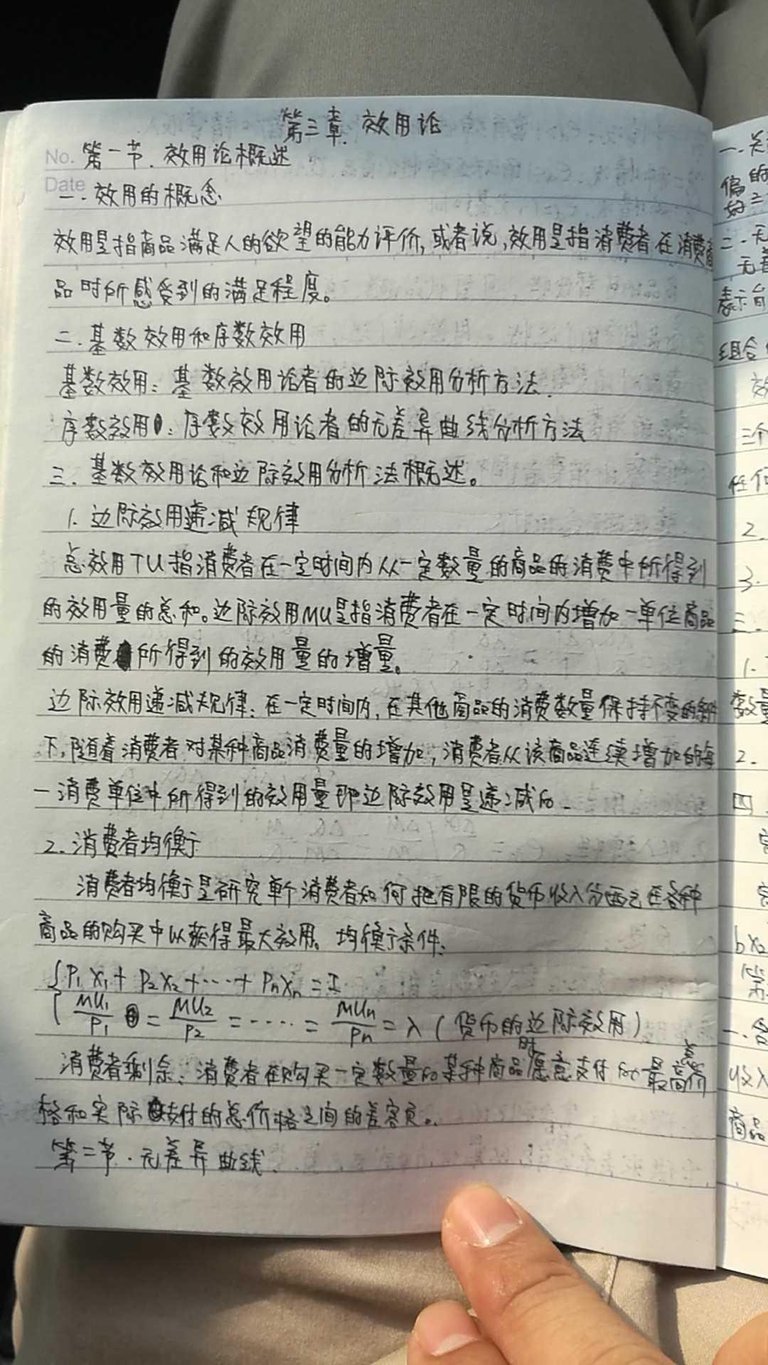 第三章.效用论
No. 第一节.效用论概述
Date
一.效用的概念
效用是指商品满足人的欲望的能力评价,或者说,效用是指消费者在消费商
品时所感受到的满足程度。
二.基数效用和序数效用
基数效用:基数效用论者的边际效用分析方法.
序数效用:序数效用论者的无差异曲线分析方法
三.基数效用论和边际效用分析法概述。
1.边际效用递减规律
总效用TU指消费者在一定时间内从一定数量的商品的消费中所得到
的效用量的总和。边际效用MU是指消费者在一定时间内增加一单位商品
的消费所得到的效用量的增量。
边际效用递减规律:在一定时间内,在其他商品的消费数量保持不变的条件
下,随着消费者对某种商品消费量的增加,消费者从该商品连续增加的每
一消费单位中所得到的效用量即边际效用是递减的.
2.消费者均衡
消费者均衡是研究单个消费者如何把有限的货币收入分配在各种
商品的购买中以获得最大效用。均衡条件:
P₁X₁+P₂X₂+……+PnXn=I
MU₁/P₁=MU₂/P₂=……=MUn/Pn=λ(货币的边际效用)
消费者剩余:消费者在购买一定数量的某种商品时愿意支付的最高总价
格和实际支付的总价格之间的差额。
第二节.无差异曲线.
一.关
偏的
好三
二.无
无差
表示
组合
效
三个
任何
2.
3.
三.
1.
数量
2.
四
b X₂
第
一.
收入
商品